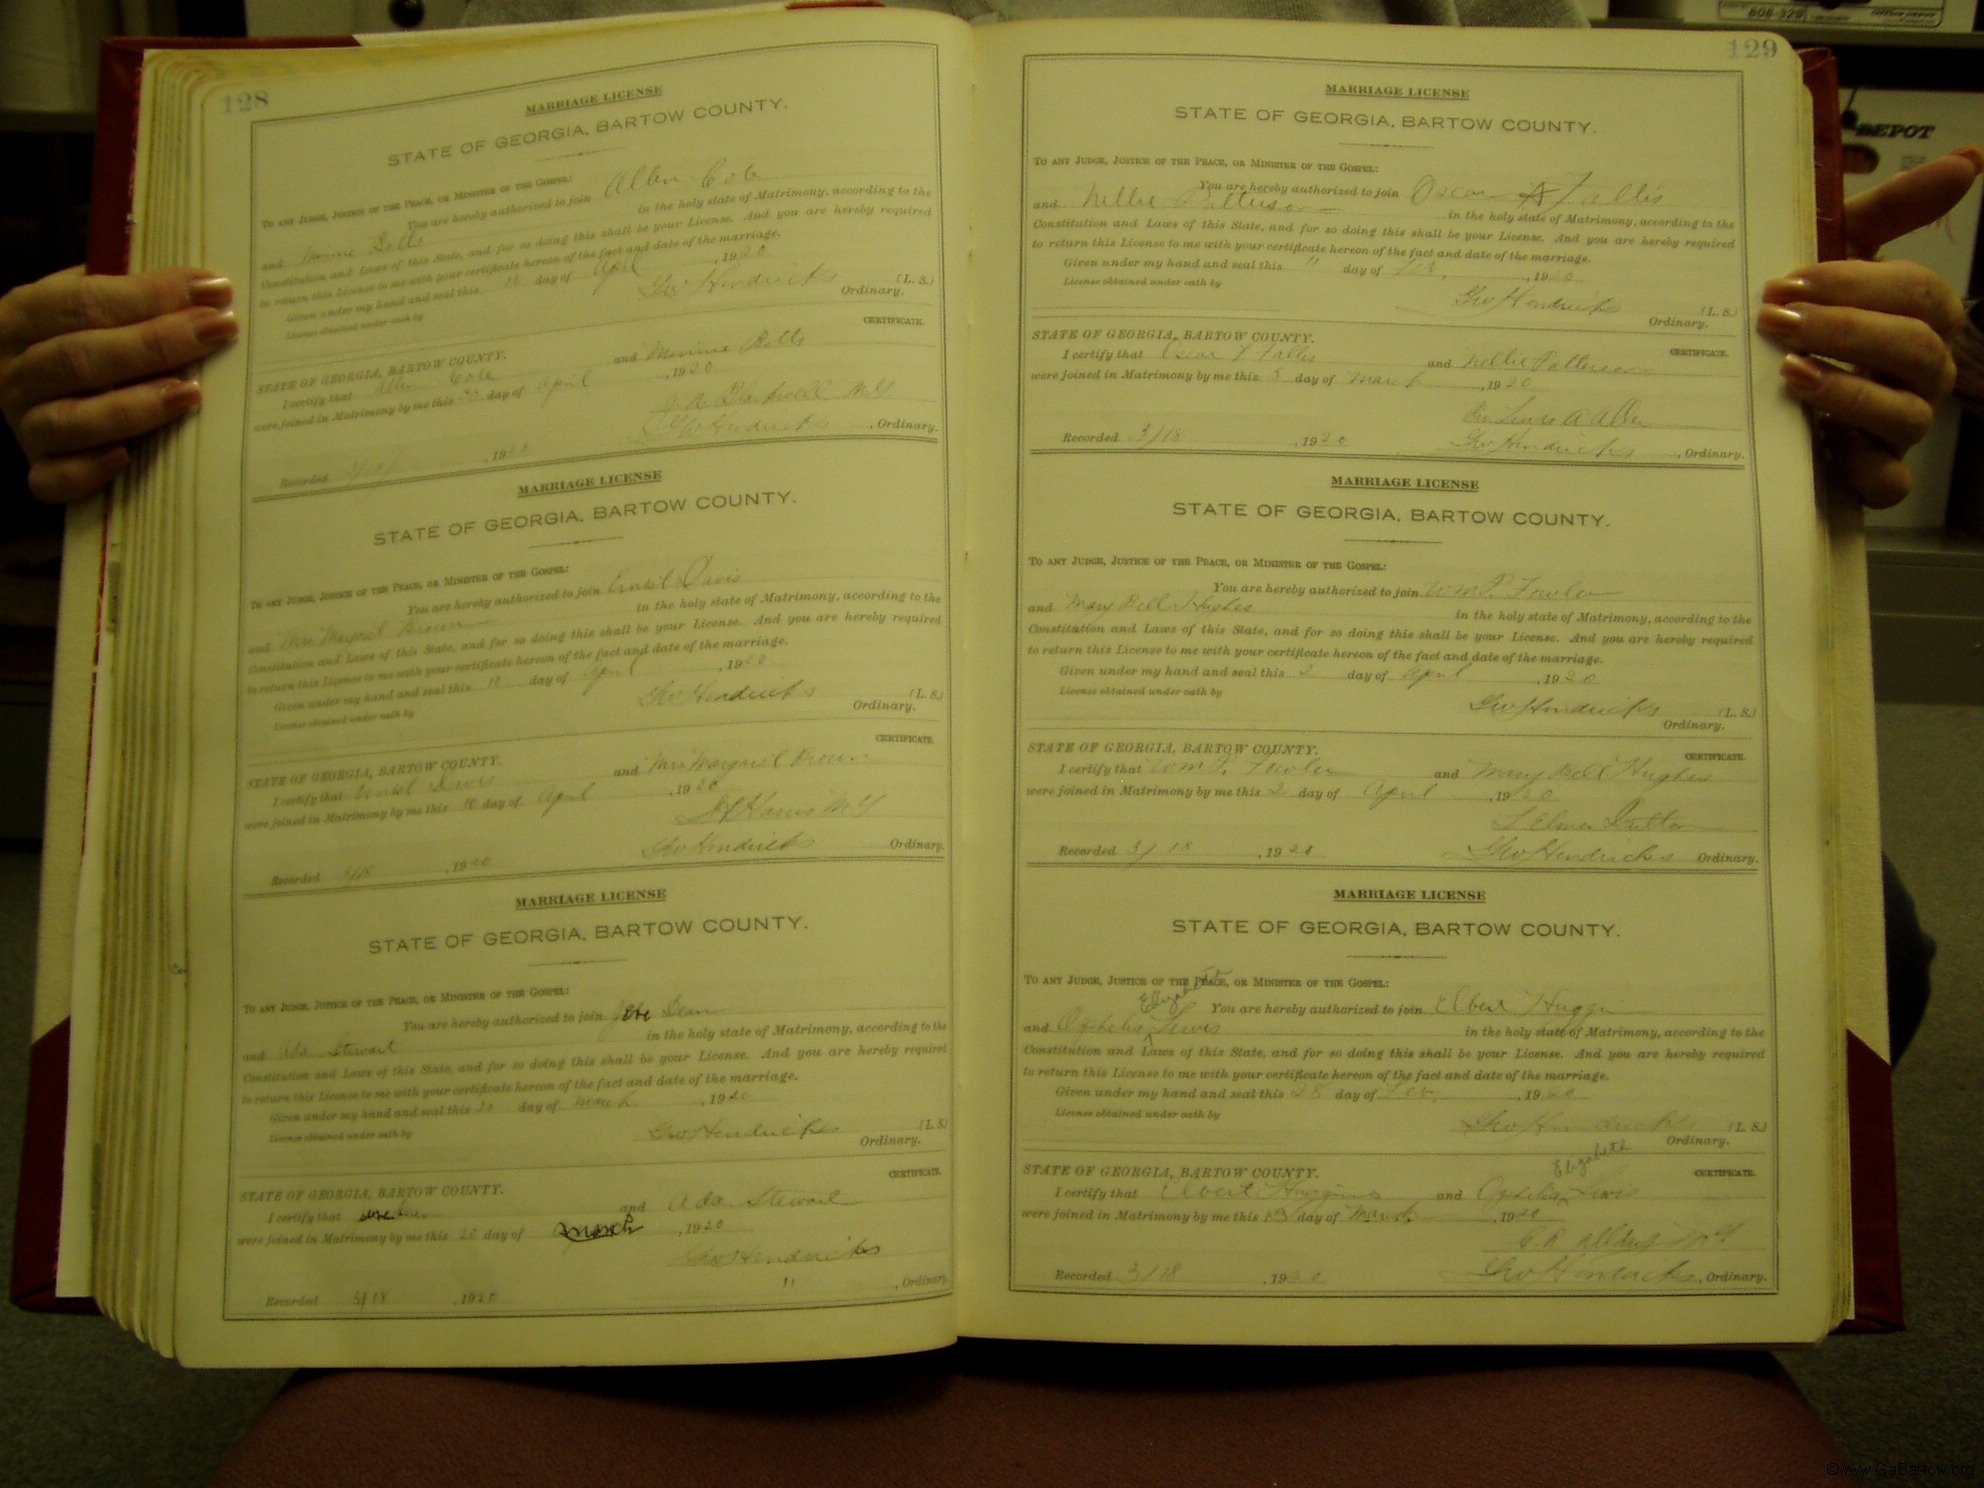 128
MARRIAGE LICENSE
STATE OF GEORGIA, BARTOW COUNTY.
TO ANY JUDGE, JUSTICE OF THE PEACE, OR MINISTER OF THE GOSPEL:
You are hereby authorized to join Allen Cole
and Minnie Botts in the holy state of Matrimony, according to the
Constitution and Laws of this State, and for so doing this shall be your License. And you are hereby required
to return this License to me with your certificate hereon of the fact and date of the marriage.
Given under my hand and seal this 10 day of April, 1920
License obtained under oath by
Geo Hendricks (L. S.)
Ordinary.
CERTIFICATE.
STATE OF GEORGIA, BARTOW COUNTY.
I certify that Allen Cole and Minnie Botts
were joined in Matrimony by me this day of April, 1920
Geo Hendricks, Ordinary.
Recorded , 1920
MARRIAGE LICENSE
STATE OF GEORGIA, BARTOW COUNTY.
TO ANY JUDGE, JUSTICE OF THE PEACE, OR MINISTER OF THE GOSPEL:
You are hereby authorized to join Davis
and Mrs Brown in the holy state of Matrimony, according to the
Constitution and Laws of this State, and for so doing this shall be your License. And you are hereby required
to return this License to me with your certificate hereon of the fact and date of the marriage.
Given under my hand and seal this 10 day of April, 1920
License obtained under oath by
Geo Hendricks (L. S.)
Ordinary.
CERTIFICATE.
STATE OF GEORGIA, BARTOW COUNTY.
I certify that Davis and Mrs Brown
were joined in Matrimony by me this 10 day of April, 1920
Harris
Geo Hendricks Ordinary.
Recorded , 1920
MARRIAGE LICENSE
STATE OF GEORGIA, BARTOW COUNTY.
TO ANY JUDGE, JUSTICE OF THE PEACE, OR MINISTER OF THE GOSPEL:
You are hereby authorized to join Dean
and Ada Stewart in the holy state of Matrimony, according to the
Constitution and Laws of this State, and for so doing this shall be your License. And you are hereby required
to return this License to me with your certificate hereon of the fact and date of the marriage.
Given under my hand and seal this 20 day of March, 1920
License obtained under oath by
Geo Hendricks (L. S.)
Ordinary.
CERTIFICATE.
STATE OF GEORGIA, BARTOW COUNTY.
I certify that and Ada Stewart
were joined in Matrimony by me this 20 day of March, 1920
Geo Hendricks
" , Ordinary.
Recorded , 1920
129
MARRIAGE LICENSE
STATE OF GEORGIA, BARTOW COUNTY.
TO ANY JUDGE, JUSTICE OF THE PEACE, OR MINISTER OF THE GOSPEL:
You are hereby authorized to join Oscar Fallis
and Nellie Patterson in the holy state of Matrimony, according to the
Constitution and Laws of this State, and for so doing this shall be your License. And you are hereby required
to return this License to me with your certificate hereon of the fact and date of the marriage.
Given under my hand and seal this day of Feb., 1920
License obtained under oath by
Geo Hendricks (L. S.)
Ordinary.
STATE OF GEORGIA, BARTOW COUNTY. CERTIFICATE.
I certify that Oscar Fallis and Nellie Patterson
were joined in Matrimony by me this 5 day of March, 1920
Rev Lewis A Allen
Recorded 3/18, 1920 Geo Hendricks, Ordinary.
MARRIAGE LICENSE
STATE OF GEORGIA, BARTOW COUNTY.
TO ANY JUDGE, JUSTICE OF THE PEACE, OR MINISTER OF THE GOSPEL:
You are hereby authorized to join Wm P. Fowler
and Mary Bell Hughes in the holy state of Matrimony, according to the
Constitution and Laws of this State, and for so doing this shall be your License. And you are hereby required
to return this License to me with your certificate hereon of the fact and date of the marriage.
Given under my hand and seal this 2 day of April, 1920
License obtained under oath by
Geo Hendricks (L. S.)
Ordinary.
STATE OF GEORGIA, BARTOW COUNTY. CERTIFICATE.
I certify that Wm P. Fowler and Mary Bell Hughes
were joined in Matrimony by me this 2 day of April, 1920
Elmer
Recorded 3/18, 1920 Geo Hendricks Ordinary.
MARRIAGE LICENSE
STATE OF GEORGIA, BARTOW COUNTY.
TO ANY JUDGE, JUSTICE OF THE PEACE, OR MINISTER OF THE GOSPEL:
Elizabeth You are hereby authorized to join Elbert Huggins
and Ophelia Lewis in the holy state of Matrimony, according to the
Constitution and Laws of this State, and for so doing this shall be your License. And you are hereby required
to return this License to me with your certificate hereon of the fact and date of the marriage.
Given under my hand and seal this 28 day of Feb., 1920
License obtained under oath by
Geo Hendricks (L. S.)
Ordinary.
Elizabeth
STATE OF GEORGIA, BARTOW COUNTY. CERTIFICATE.
I certify that Elbert Huggins and Ophelia Lewis
were joined in Matrimony by me this 13 day of March, 1920
Recorded 3/18, 1920 Geo Hendricks, Ordinary.
608-329
DEPOT
©www.GaBartow.org